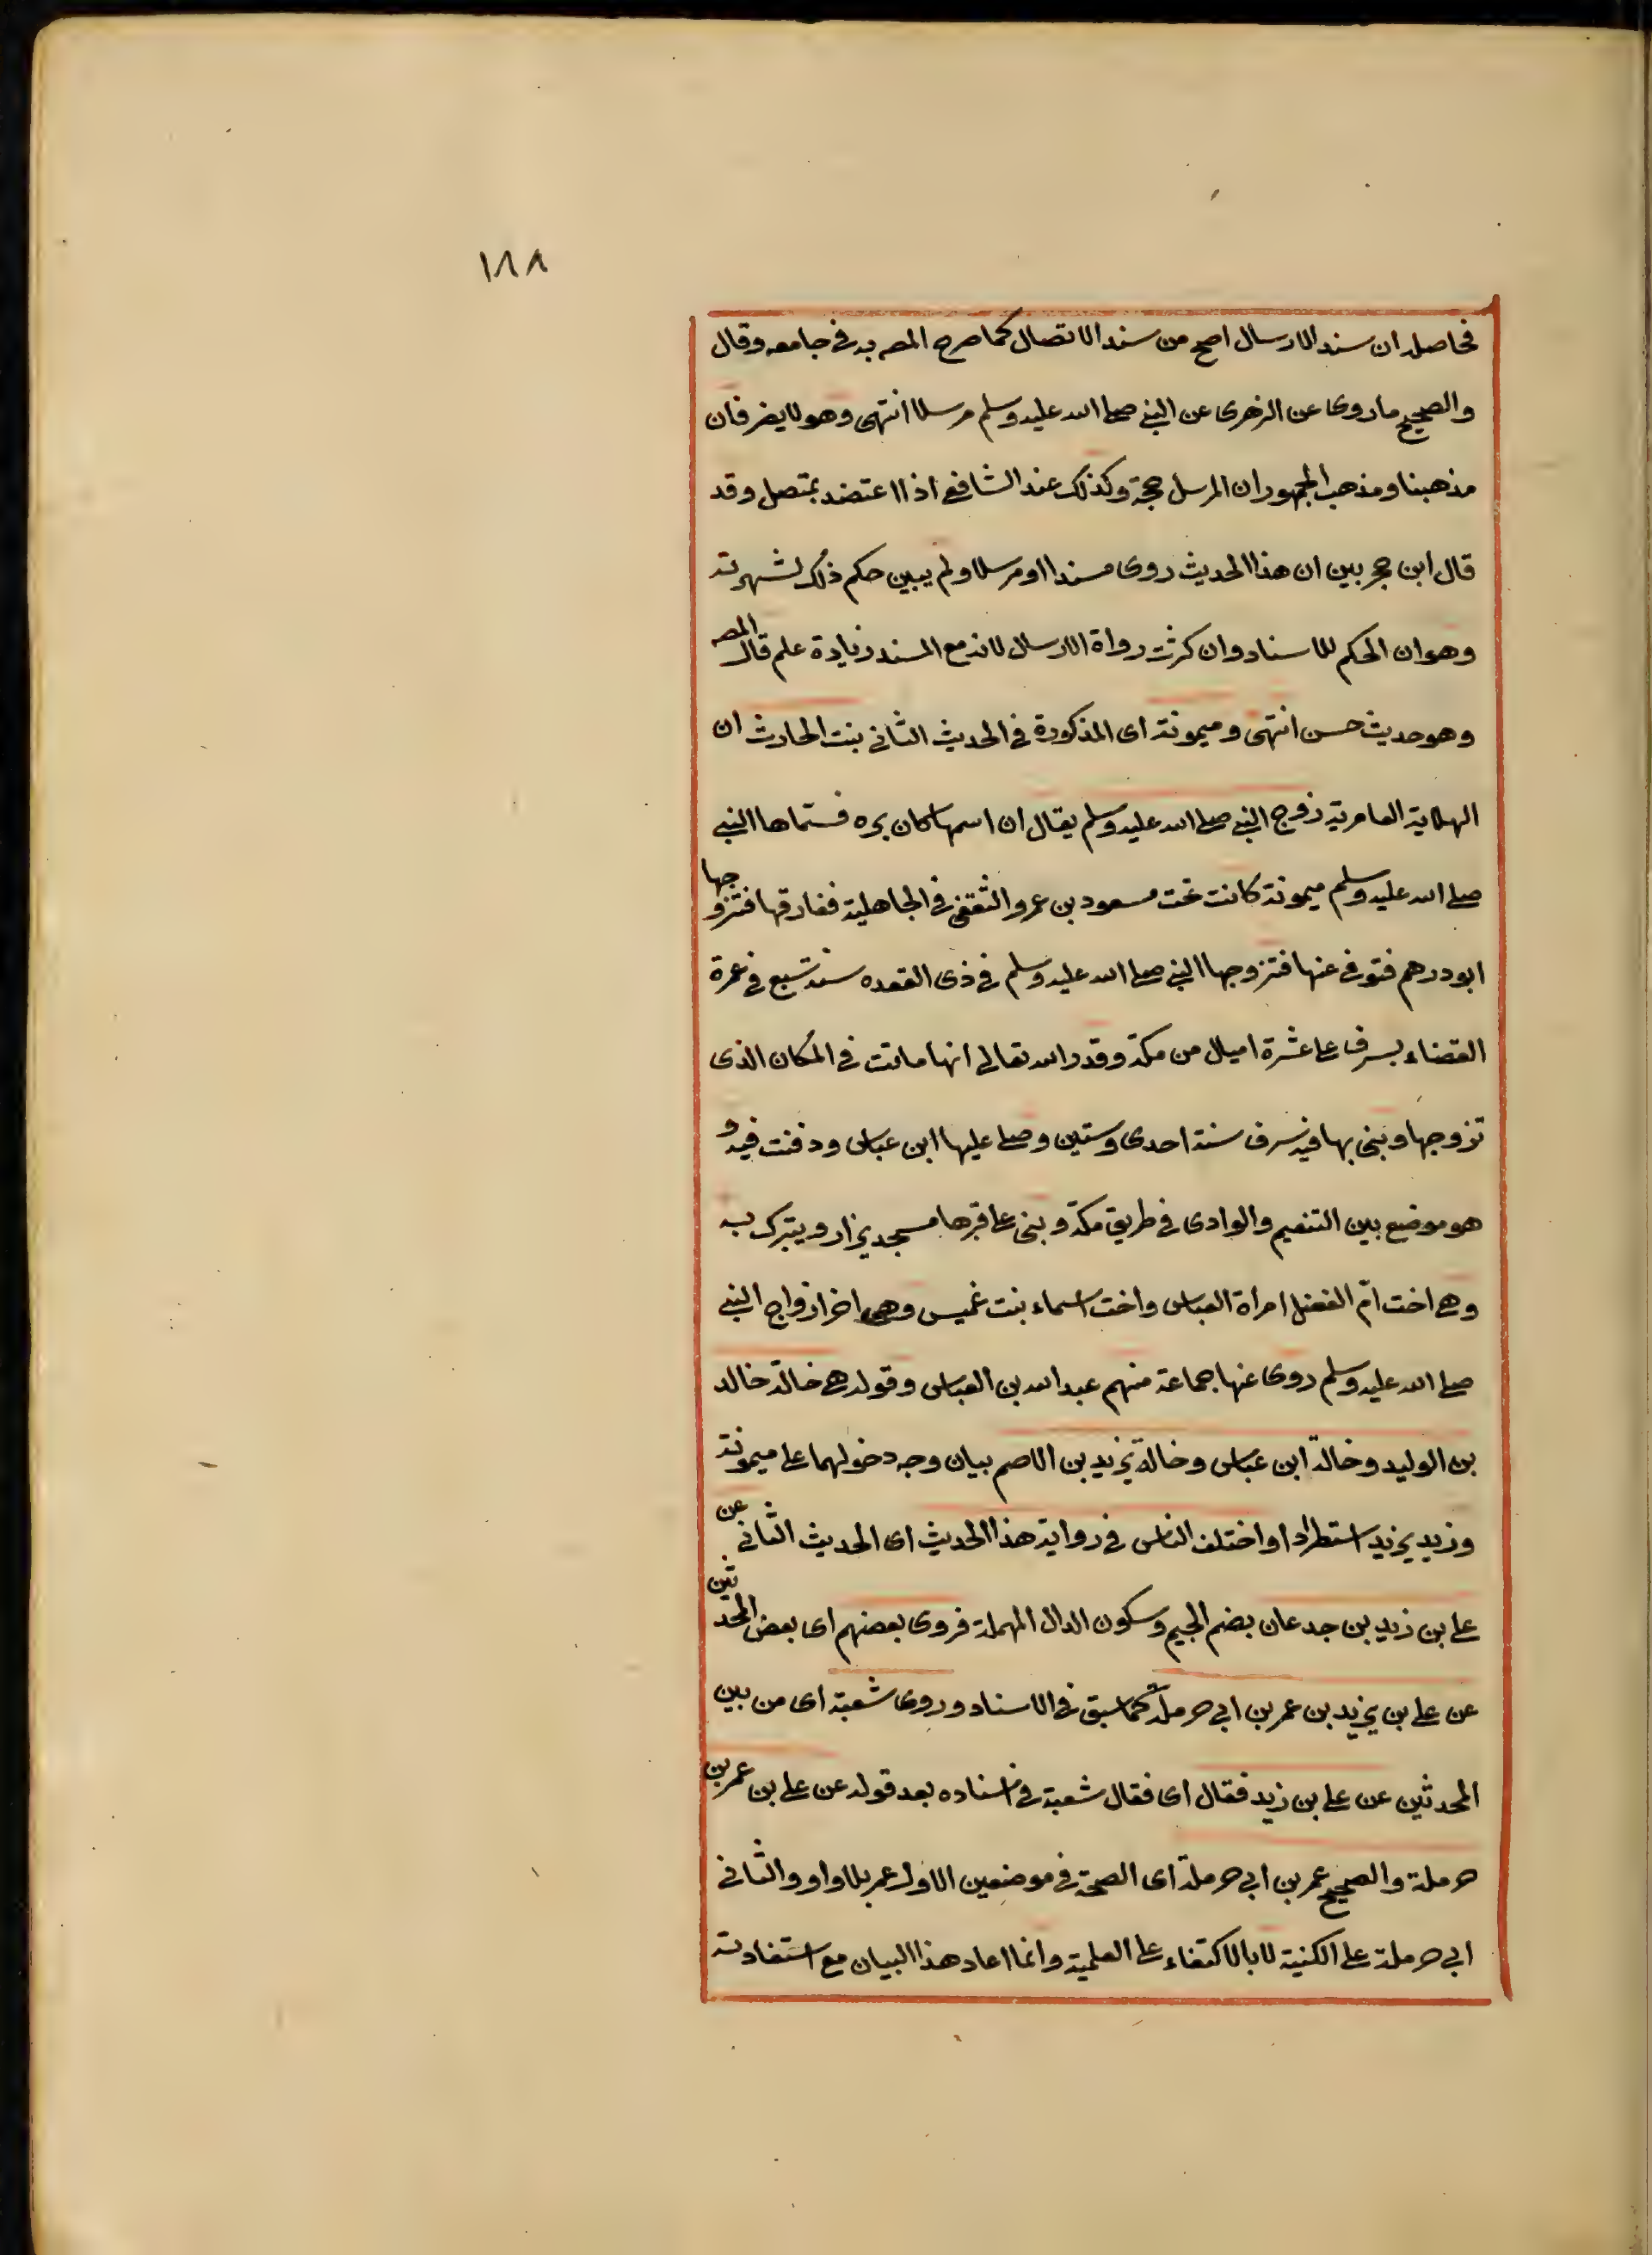 ١٨٨
فحاصله ان سند الارسال اصح من سند الاتصال كما صرح المصـ به في جامعه وقال
والصحيح ما روى عن الزهرى عن النبي صلى الله عليه وسلم مرسلا انتهى وهو لا يضر فان
مذهبنا ومذهب الجمهور ان المرسل حجة وكذلك عند الشافعي اذا اعتضد بمتصل وقد
قال ابن حجر بين ان هذا الحديث روى مسندا او مرسلا ولم يبين حكم ذلك لشهرته
وهو ان الحكم للاسناد وان كثرت رواة الارسال لانه مع المسند زيادة علم قال المصـ
وهو حديث حسن انتهى وميمونة اى المذكورة في الحديث الثاني بنت الحارث ان
الهلاية العامرية زوج النبي صلى الله عليه وسلم يقال ان اسمها كان بره فسماها النبي
صلى الله عليه وسلم ميمونة كانت تحت مسعود بن عمرو الثقفي في الجاهلية ففارقها فتزوجها
ابو درهم فتوفى عنها فتزوجها النبي صلى الله عليه وسلم في ذى القعده سنة تسبع في عمرة
القضاء بسرف على عشرة اميال من مكة وقدر الله تعالى انها ماتت في المكان الذى
تزوجها وبنى بها فيه سرف سنة احدى وستين وصلى عليها ابن عباس ودفنت فيه و
هو موضع بين التنعيم والوادى في طريق مكة وبنى على قبرها مسجد يزار ويتبرك به
وهي اخت ام الفضل امراة العباس واخت اسماء بنت عميس وهى اخر ازواج النبي
صلى الله عليه وسلم روى عنها جماعة منهم عبد الله بن العباس وقوله هي خالة خالد
بن الوليد وخالة ابن عباس وخالة يزيد بن الاصم بيان وجه دخولهما على ميمونة
وزيد يزيد استطرادا واختلف الناس في رواية هذا الحديث اى الحديث الثاني عن
على بن زيد بن جدعان بضم الجيم وسكون الدال المهملة فروى بعضهم اى بعض المحدثين
عن على بن يزيد بن عمر بن ابي حرملة كما سبق في الاسناد وروى شعبة اى من بين
المحدثين عن على بن زيد فقال اى فقال شعبة في اسناده بعد قوله عن على بن عمر بن
حرملة والصحيح عمر بن ابي حرملة اى الصحة في موضعين الاول عمر بلا واو والثاني
ابي حرملة على الكنية لا بالاكتفاء على العلمية وانما اعاد هذا البيان مع استفادته